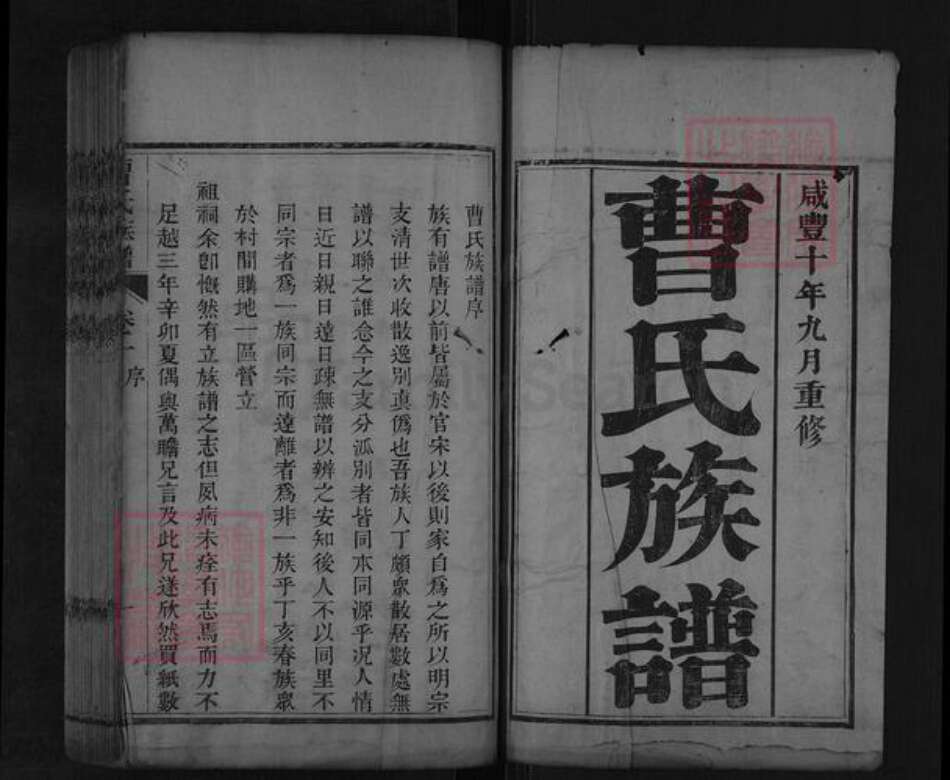 咸豐十年九月重修
曹氏族譜
曹氏族譜序
族有譜唐以前皆屬於官宋以後則家自為之所以明宗
支清世次收散逸別真僞也吾族人丁頗衆散居數處無
譜以聯之誰念今之支分派別者皆同本同源乎况人情
日近日親日遠日疎無譜以辨之安知後人不以同里不
同宗者爲一族同宗而遠離者爲非一族乎丁亥春族衆
於村間購地一區營立
祖祠余卽慨然有立族譜之志但夙病未痊有志焉而力不
足越三年辛卯夏偶與萬瞻兄言及此兄遂欣然買紙數
曹氏族譜 卷一 序 一